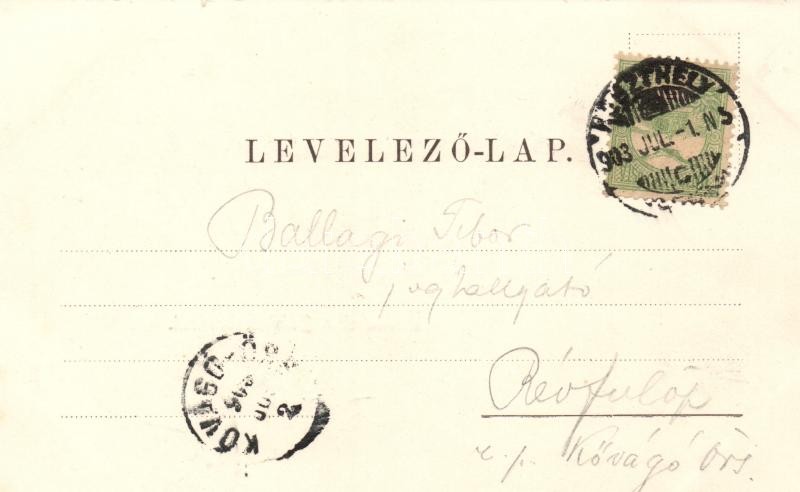 KESZTHELY
903 JUL.-1. N5
LEVELEZŐ-LAP.
Ballagi Tibor
joghallgató
KŐVÁGÓ-ÖRS
903 JUL 2
Révfülöp
u. p. Kővágó Örs.